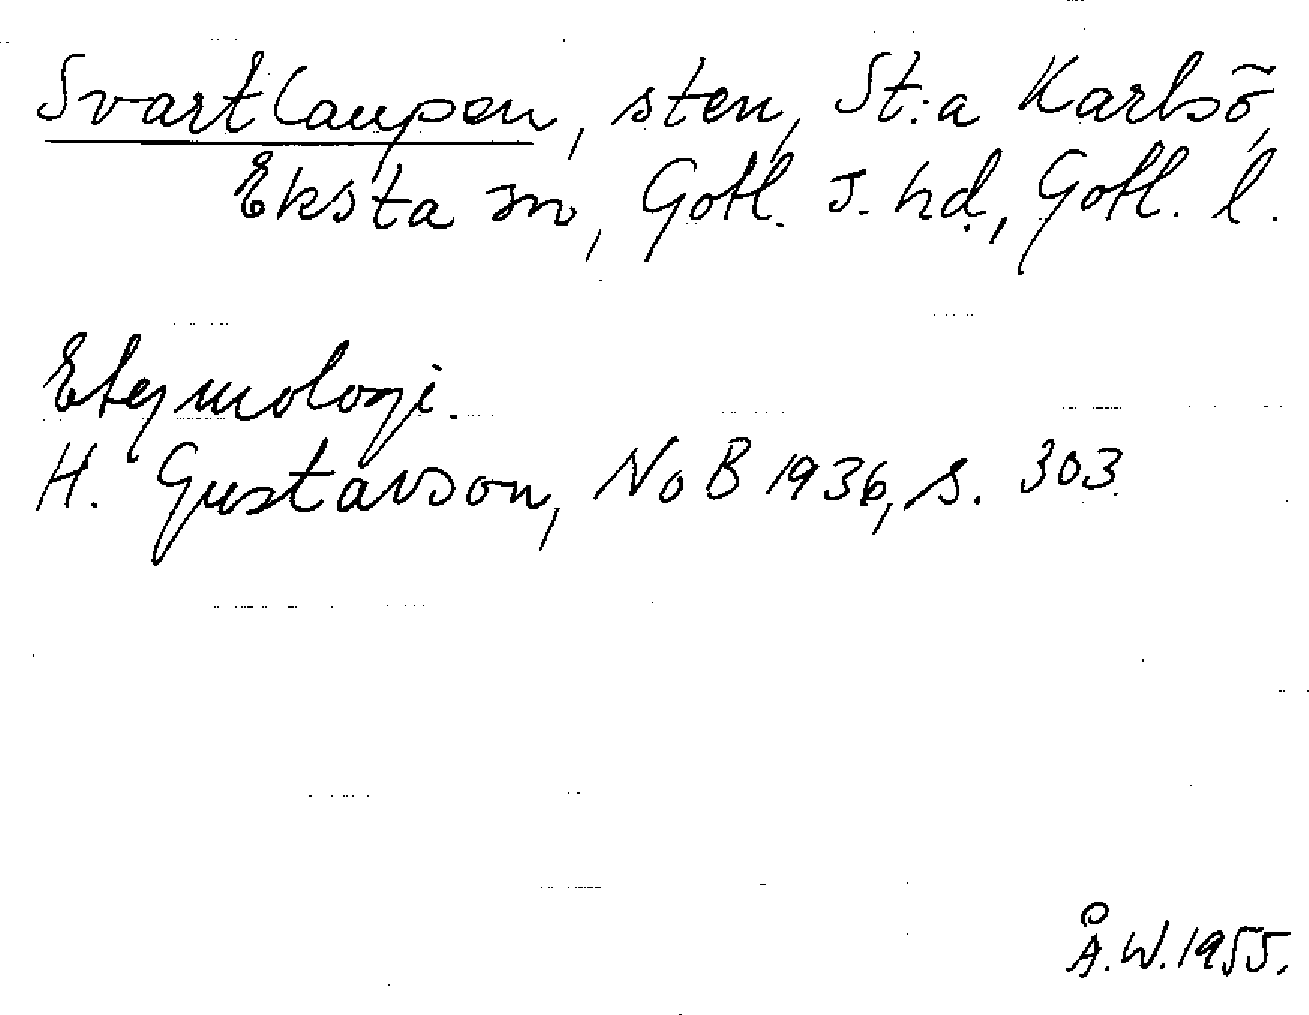 Svartlaupen, sten, St:a Karlsö,
Eksta sn, Gotl. s. hd., Gotl. l.
Etymologi.
H. Gustavson, NoB 1936, s. 303.
Å.W. 1955.